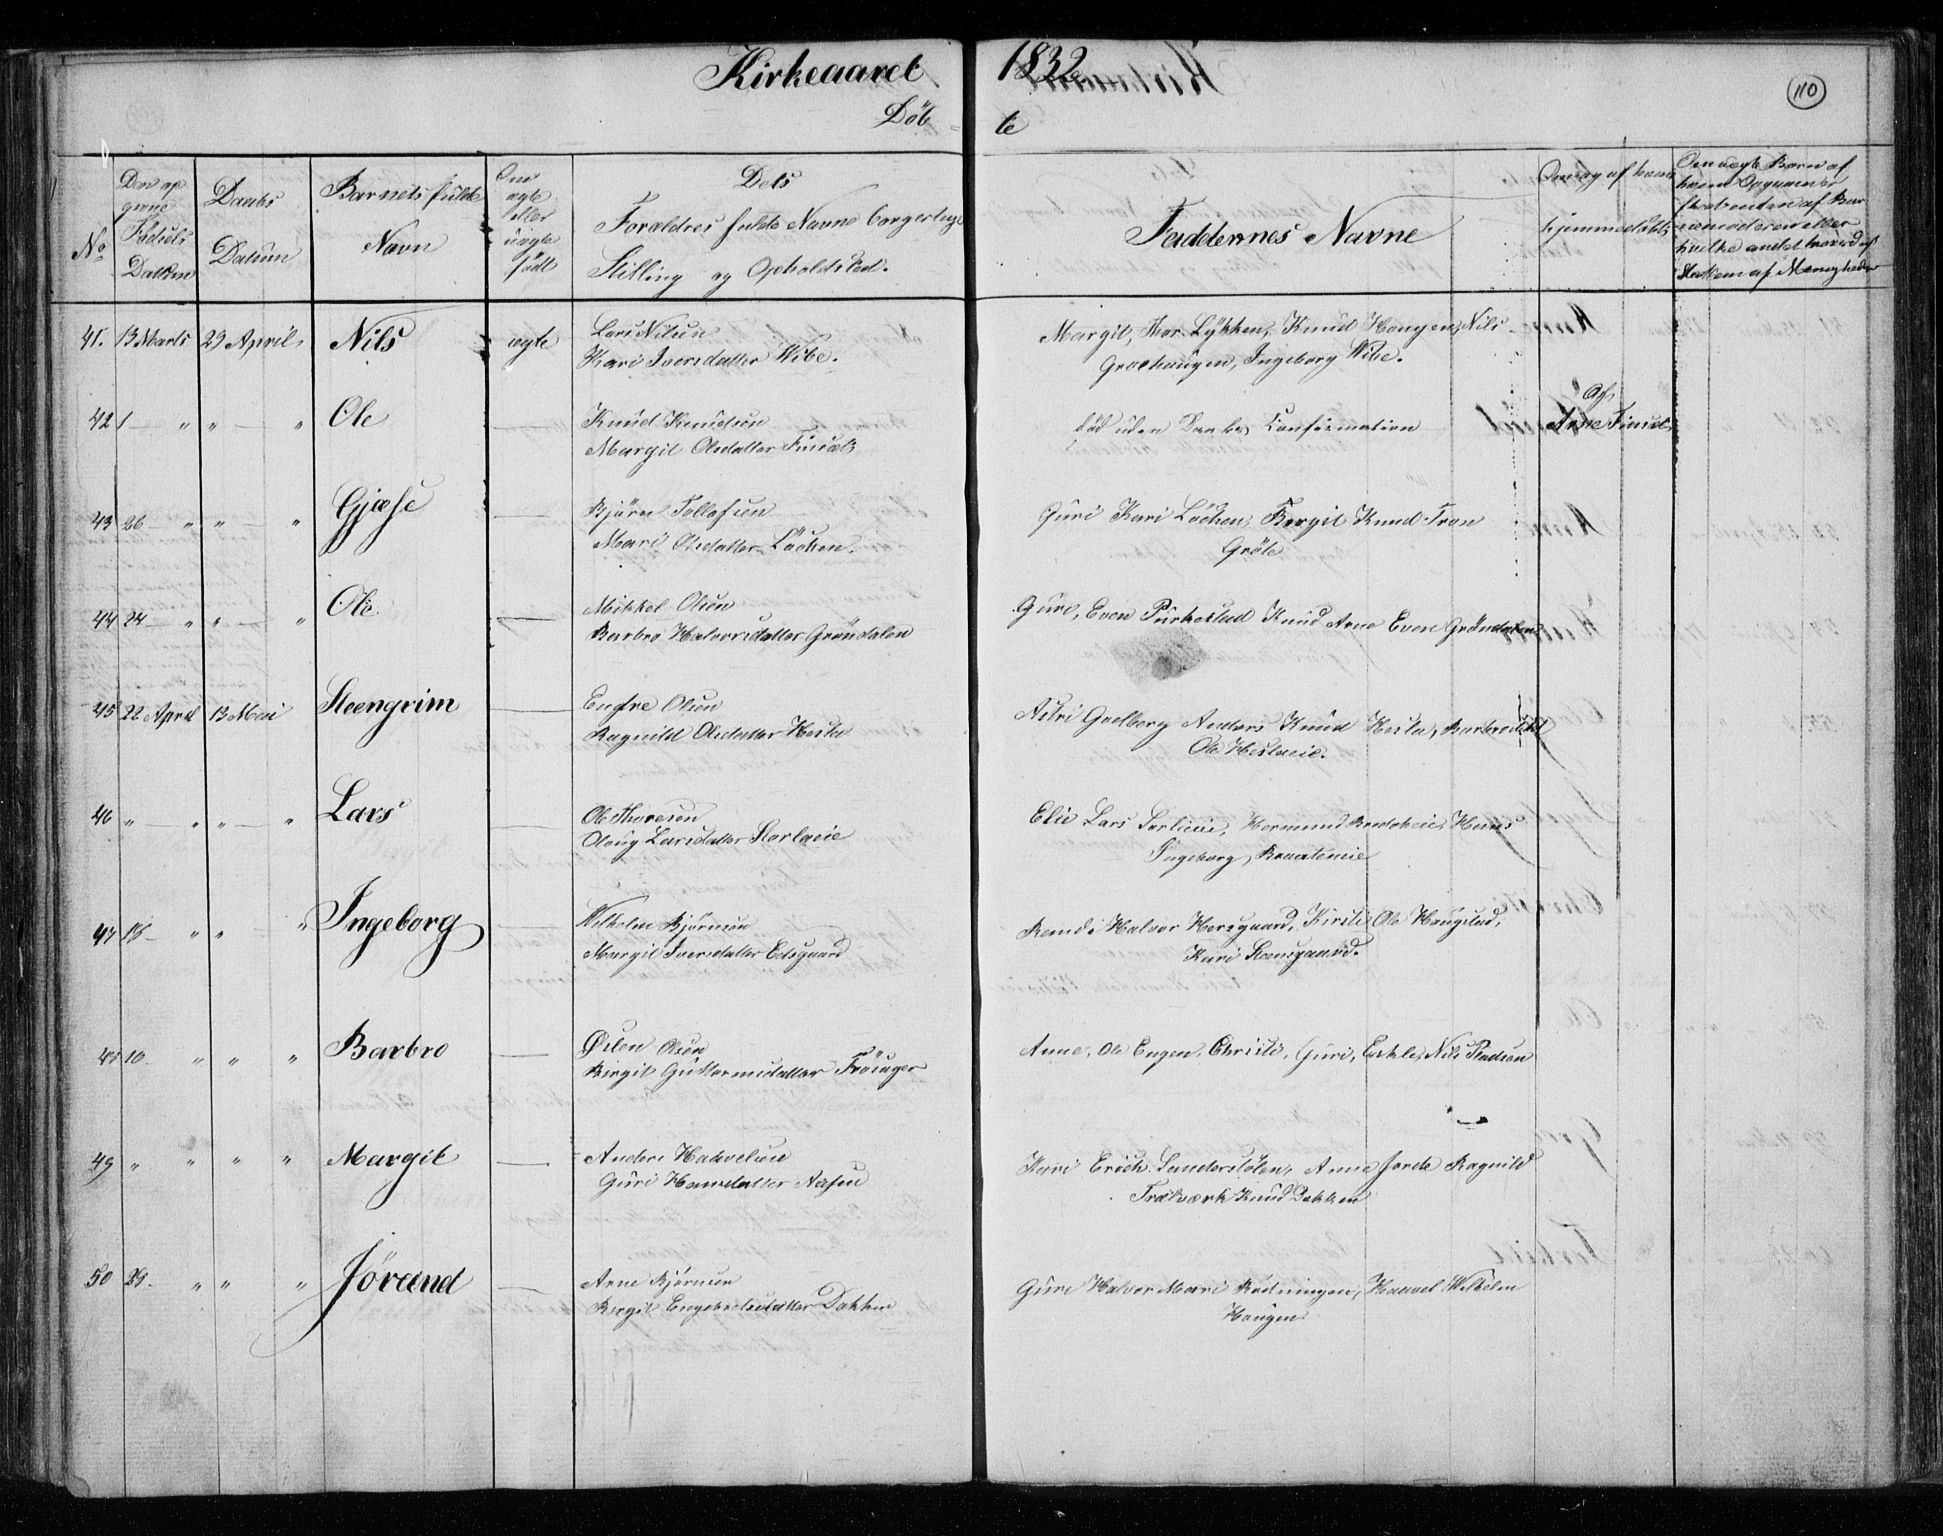 Kirkeaaret 1832
110
Döbte
No
Den op
givne
Fødsels
Datum
Daabs
Datum
Barnets fulde
Navn
Om
ægte
eller
uægte
født
Dets
Forældres fulde Navne borgerlige
Stilling og Opholdsted.
Faddernes Navne
Om og af hvem
hjemmedöbt
Om uægte Børn af
hvem Opgaven er
skebenten af Bar
nemoderen eller
hvilke andet troværdigt
Medlem af Menigheden
41. 13 Marts 29 April. Nils ægte Lars Nilsen
Kari Iversdatter Wibe.
Margit, Thor Lykken, Knud Haugen, Nils
Graehaugen, Ingeborg Wibe.
42 1 — " " — " Ole — Knud Knudsen
Margit Olsdatter Finset
död uden Daabs Confirmation
Af
Arne Finset
43 26 — " " — " Gjæse — Björn Tollefsen
Mari Olsdatter Löcken.
Guri Kari Löcken, Birgit Knud Tron
Gröte
44 24 — " " — " Ole. — Mikkel Olsen
Barbro Halvorsdatter Gröndalen
Guri, Even Purkestad Knud Arne Even Gröndalen
45 22 April 13 Mai Steengrim — Endre Olsen
Ragnild Olsdatter Hesla
Astri Golberg Anders Knud Hesla, Barbro
Ole Heslaeie.
46 " — " " — " Lars — Ole Thoresen
Oloug Larsdatter Storlaeie
Elie Lars Sorlieie, Hermund Bradeheie, Hans
Ingeborg, Braateneie
47 18 — " " " Ingeborg — Wilhelm Björnsen
Margit Iversdatter Eidsgaard
Randi Halvor Hersgaard, Kirsti Ole Haugstad,
Kari Steensgaard.
48 10. " " " Barbro — Østen Olsen
Birgit Guttormsdatter Frösager
Anne, Ole Engen, Christi, Guri, Eschle, Nils Pladsen
49 " " " " Margit — Anders Halvelsen
Guri Hansdatter Aasen
Kari Erich Sanderstölen, Anne Jorde Ragnild
Trætværk Knud Dokken
50 29. " " " Jörand — Arne Björnsen
Birgit Engebretsdatter Dokken
Guri Halvor Mari Rödningen, Haavel Wilhelm
Haugen